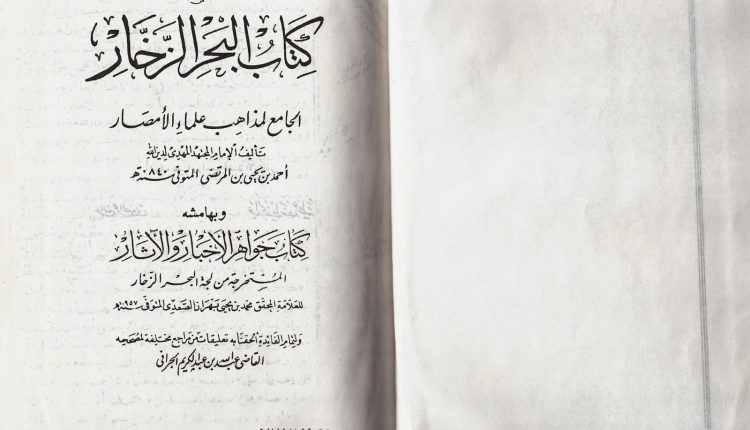 كِتَابُ البَحْرِ الزَّخَّارِ
الجامع لمذاهب علماء الأمصار
تأليف الإمام المجتهد المهدي لدين الله
أحمد بن يحيى بن المرتضى المتوفى سنة ٨٤٠ هـ
وبهامشه
كِتَابُ جَوَاهِرِ الأَخْبَارِ وَالآثَارِ
المستخرجة من لجة البحر الزخار
للعلامة المحقق محمد بن يحيى بهران الصعدي المتوفى سنة ٩٥٧ هـ
ولتمام الفائدة ألحقنا به تعليقات من مراجع مختلفة لمصححه
القاضي عبد الله بن عبد الكريم الجرافي